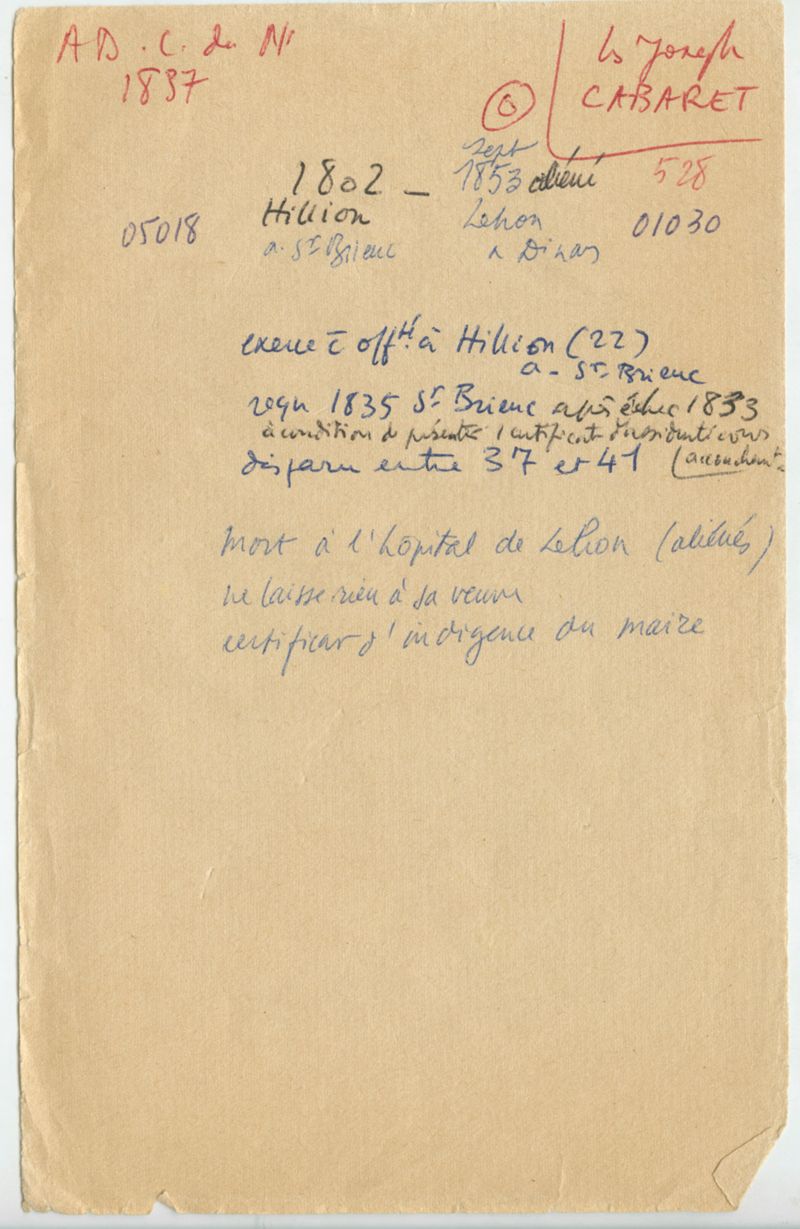 A D . C. du N
1837
Ls Joseph
CABARET
0
1802 - sept 1853 aliéné 528
05018 Hillion Lehon 01030
a. St Brieuc a Dinan
exerce c̄ off. à Hillion (22)
a - St Brieuc
reçu 1835 St Brieuc après échec 1833
à condition de présenter 1 certificat d'assiduité cours
disparu entre 37 et 41 (accouchent
mort à l'hôpital de Lehon (aliénés)
ne laisse rien à sa veuve
certificat d'indigence du maire